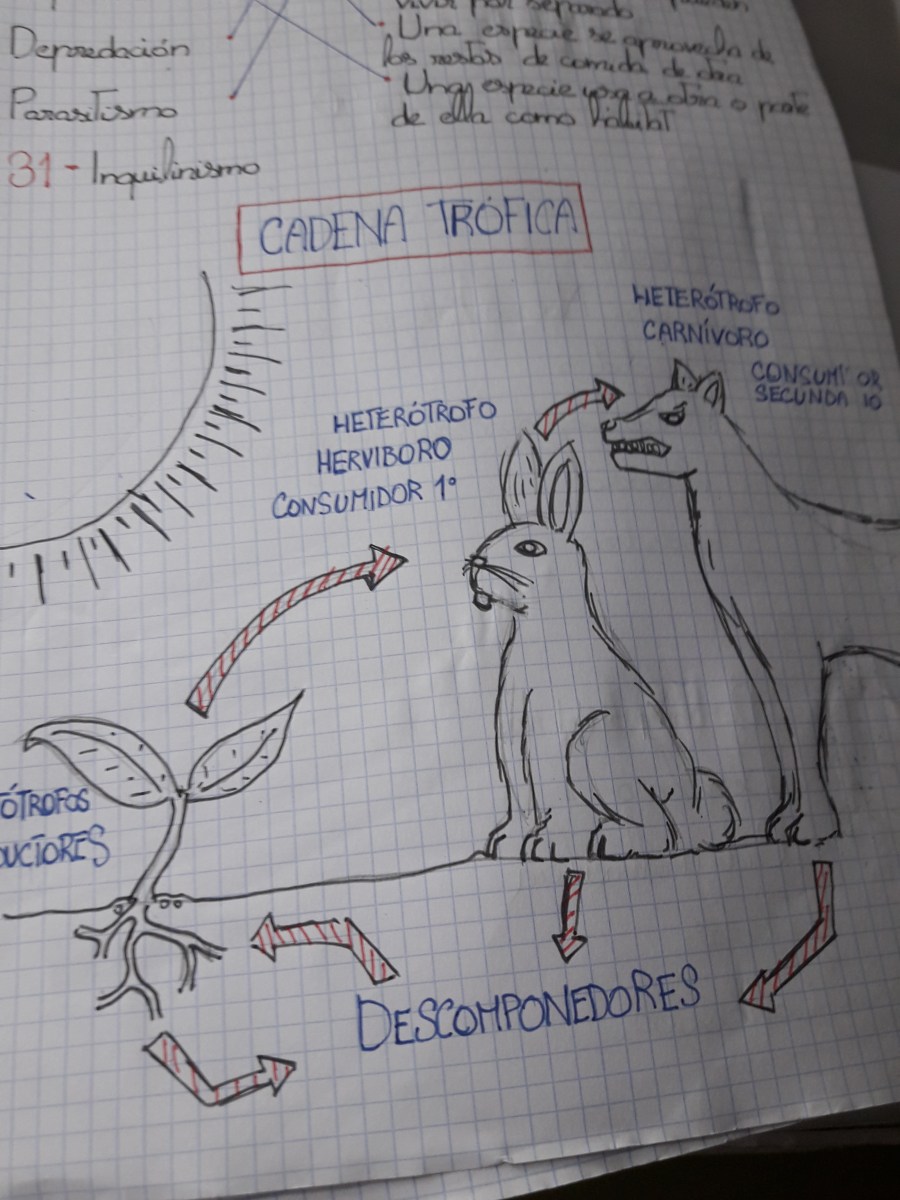 vivir por separado
Depredación
Una especie se aprovecha de
los restos de comida de otra
Parasitismo
Una especie
de ella como
31 - Inquilinismo
CADENA TRÓFICA
HETERÓTROFO
CARNÍVORO
CONSUMI OR
SECUNDA IO
HETERÓTROFO
HERVIBORO
CONSUMIDOR 1°
ÓTROFOS
DUCTORES
DESCOMPONEDORES